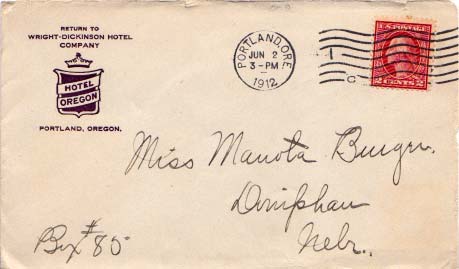 RETURN TO
WRIGHT-DICKINSON HOTEL
COMPANY
HOTEL
OREGON
PORTLAND, OREGON.
PORTLAND, ORE.
JUN 2
3-PM
1912
1
C
U.S. POSTAGE
2 CENTS 2
Miss Manota Burger.
Doniphan
Nebr.
Box #80